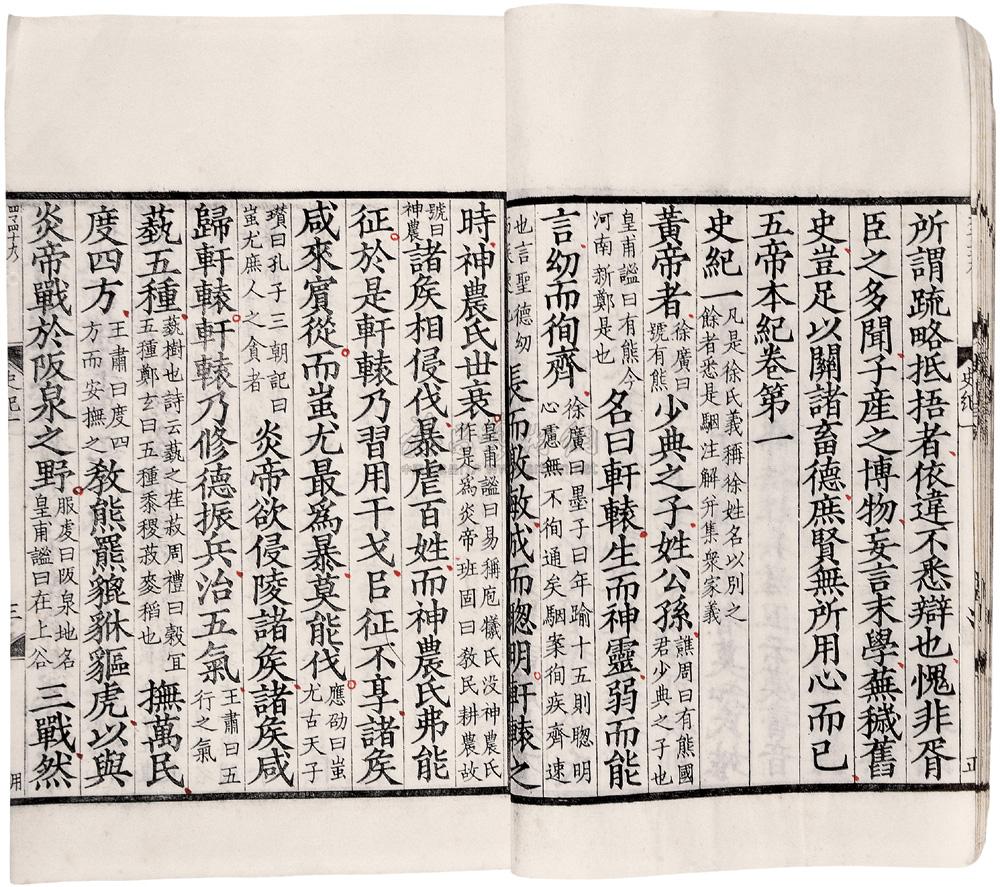 所謂疏略抵捂者依違不悉辯也愧非胥
臣之多聞子産之博物妄言末學蕪穢舊
史豈足以關諸畜德庶賢無所用心而已
五帝本紀卷第一
史紀一凡是徐氏義稱徐姓名以别之餘者悉是駰注解并集衆家義
黃帝者徐廣曰號有熊少典之子姓公孫譙周曰有熊國君少典之子也
皇甫謐曰有熊今河南新鄭是也名曰軒轅生而神靈弱而能
言幼而徇齊徐廣曰墨子曰年踰十五則聦明心慮無不徇通矣駰案徇疾齊速
也言聖德幼長而敦敏成而聦明軒轅之
時神農氏丗衰皇甫謐曰易稱庖犧氏没神農氏作是爲炎帝班固曰教民耕農故
號曰神農諸矦相侵伐暴虐百姓而神農氏弗能
征於是軒轅乃習用干戈㠯征不享諸矦
咸來賓從而蚩尤最爲暴莫能伐應劭曰蚩尤古天子
瓚曰孔子三朝記曰蚩尤庶人之貪者炎帝欲侵陵諸矦諸矦咸
歸軒轅軒轅乃修德振兵治五氣王肅曰五行之氣
蓺五種蓺樹也詩云蓺之荏菽周禮曰穀宜五種鄭玄曰五種黍稷菽麥稻也撫萬民
度四方王肅曰度四方而安撫之教熊羆貔貅貙虎以與
炎帝戰於阪泉之野服虔曰阪泉地名皇甫謐曰在上谷三戰然